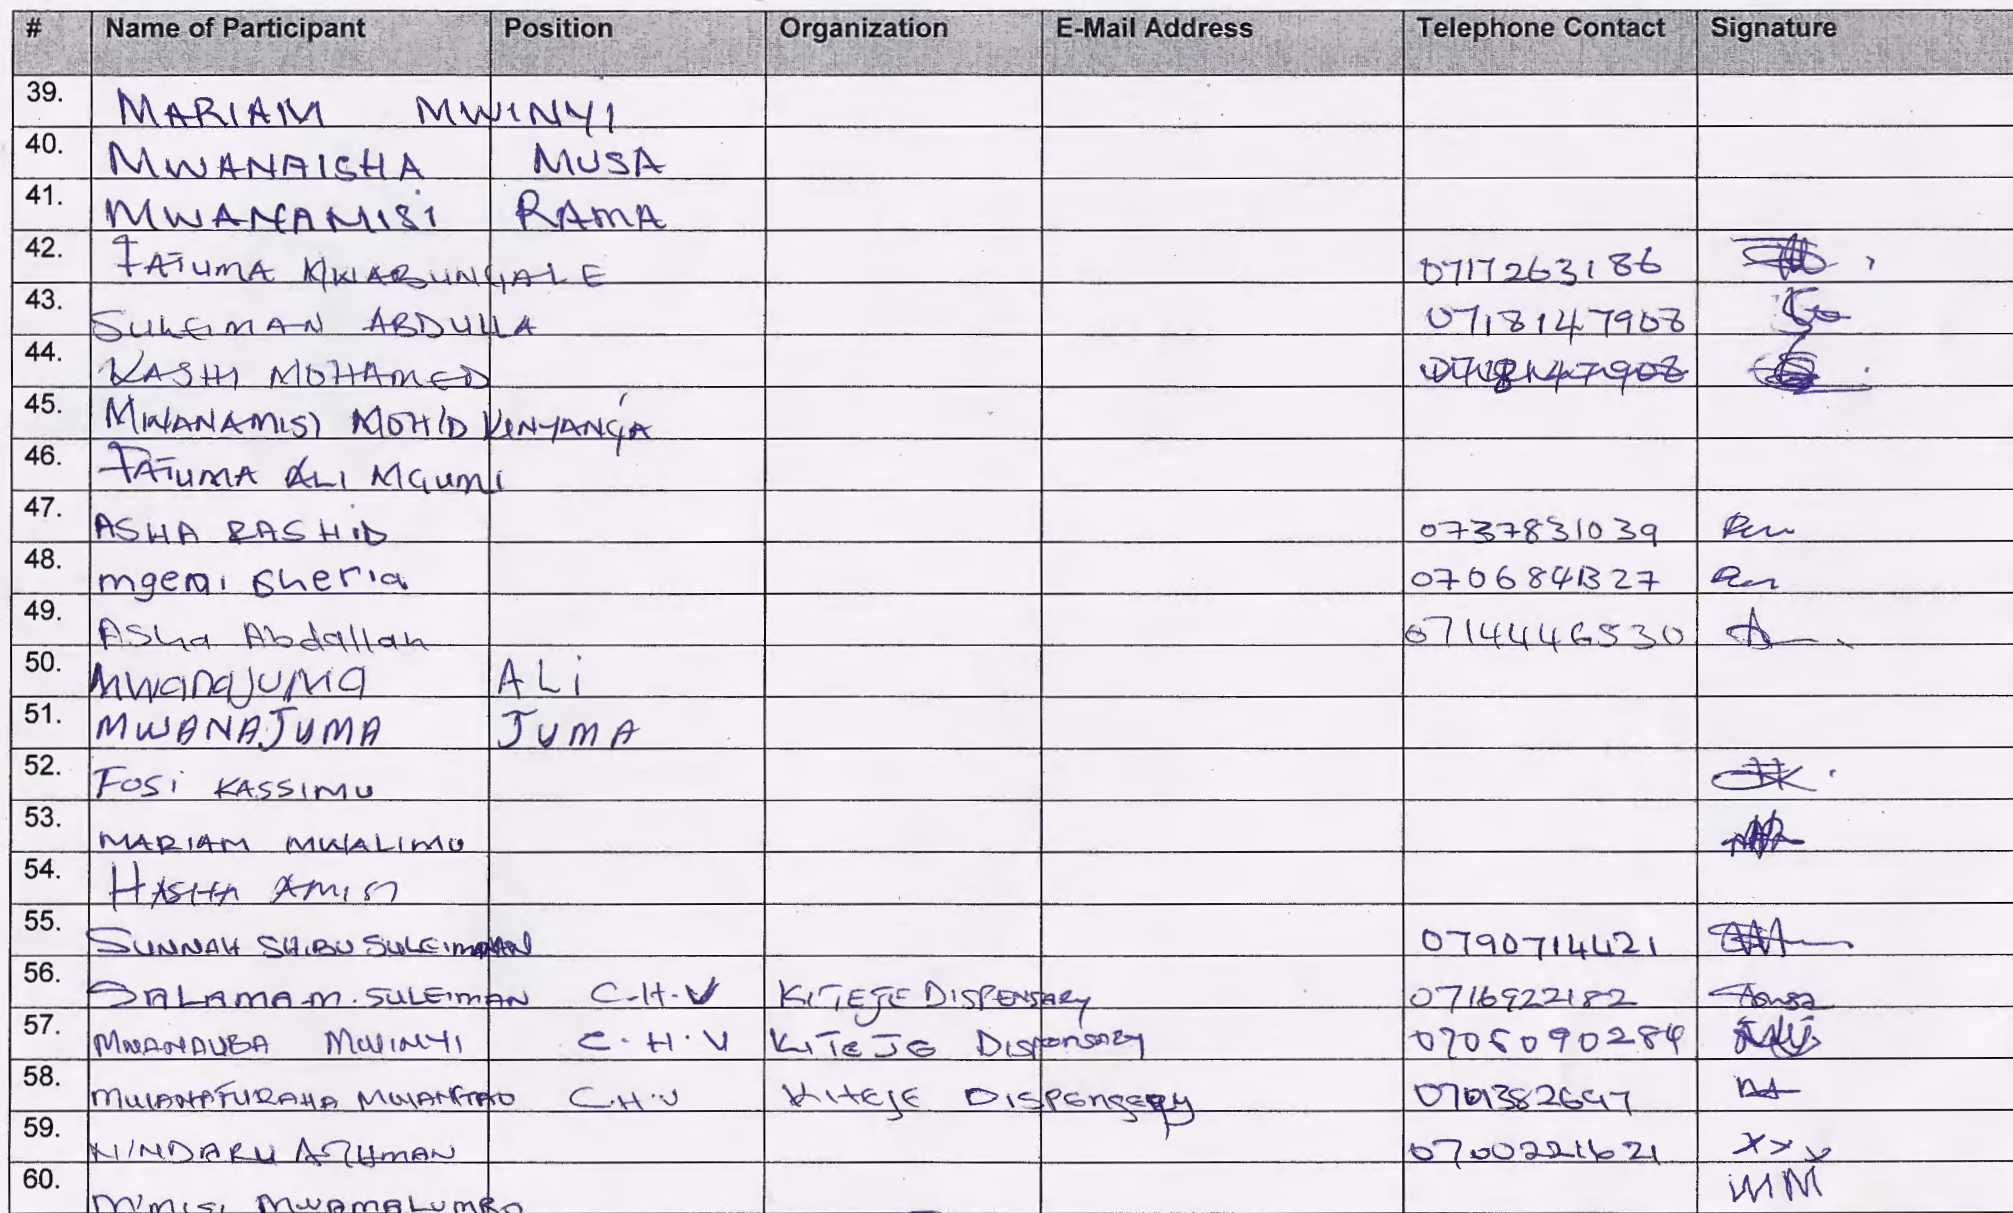 # Name of Participant Position Organization E-Mail Address Telephone Contact Signature
39. MARIAM MWINYI
40. MWANAISHA MUSA
41. MWANAMISI RAMA
42. FATUMA MWABUNGALE 0717263186
43. SULEIMAN ABDULLA 0718147908
44. KASHI MOHAMED
45. MWANAMISI MOHID KINYANGA
46. FATUMA ALI MGUMI
47. ASHA RASHID 0737831039
48. mgeni sheria
49. Asha Abdallah 0714446530
50. MWANAJUMA ALI
51. MWANAJUMA JUMA
52. FOSI KASSIMU
53. MARIAM MWALIMU
54. HASHA AMISI
55. SUNNAH SHIBU SULEIMAN 0790714421
56. SALAMA M. SULEIMAN C.H.V KITEJE DISPENSARY 0716922182
57. MWANAUBA MWINYI C.H.V KITEJE Dispensary
58. MWANAFURAHA C.H.V KITEJE DISPENSERY
59. ATHMAN 0700221621 xxx
60. M'MISI MWAMALUMBO MM